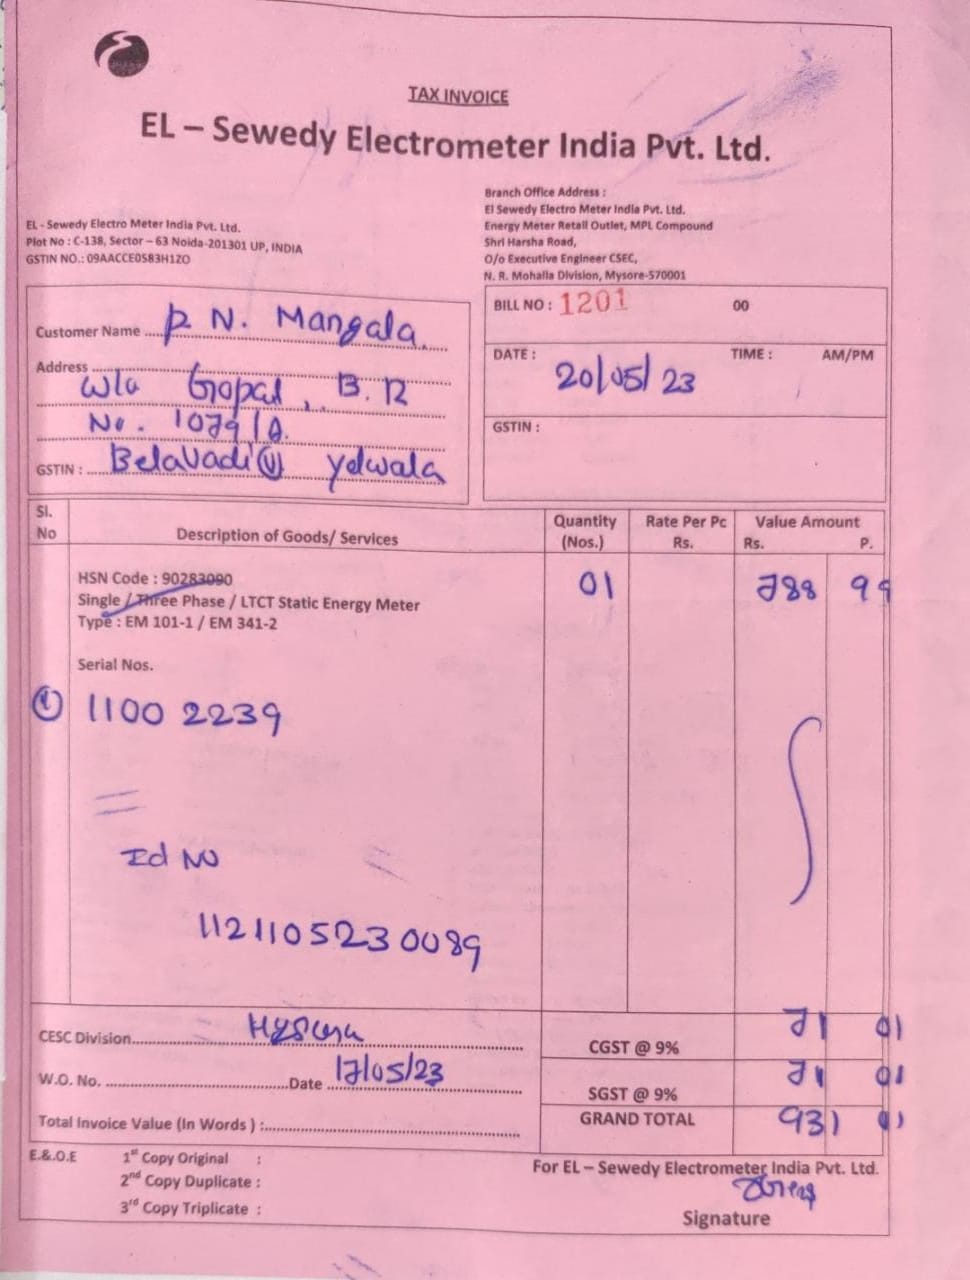 TAX INVOICE
EL – Sewedy Electrometer India Pvt. Ltd.
EL - Sewedy Electro Meter India Pvt. Ltd.
Plot No : C-138, Sector – 63 Noida-201301 UP, INDIA
GSTIN NO.: 09AACCE0583H1ZO
Branch Office Address :
El Sewedy Electro Meter India Pvt. Ltd.
Energy Meter Retail Outlet, MPL Compound
Shri Harsha Road,
O/o Executive Engineer CSEC,
N. R. Mohalla Division, Mysore-570001
Customer Name ..... P. N. Mangala
Address ..... W/o Gopal, B. R
No. 1079/A.
GSTIN : ..... Belavadi (V) Yelwala
BILL NO : 1201 00
DATE : 20/05/23 TIME : AM/PM
GSTIN :
Sl. No Description of Goods/ Services Quantity (Nos.) Rate Per Pc Rs. Value Amount Rs. P.
HSN Code : 90283090 01 788 99
Single / Three Phase / LTCT Static Energy Meter
Type : EM 101-1 / EM 341-2
Serial Nos.
① 1100 2239
Id No
1121105230089
CESC Division..... CGST @ 9% 71 01
W.O. No. .....Date ..... 17/05/23 SGST @ 9% 71 01
Total Invoice Value (In Words ) :..... GRAND TOTAL 931 01
E.&.O.E 1st Copy Original :
2nd Copy Duplicate :
3rd Copy Triplicate :
For EL – Sewedy Electrometer India Pvt. Ltd.
Signature